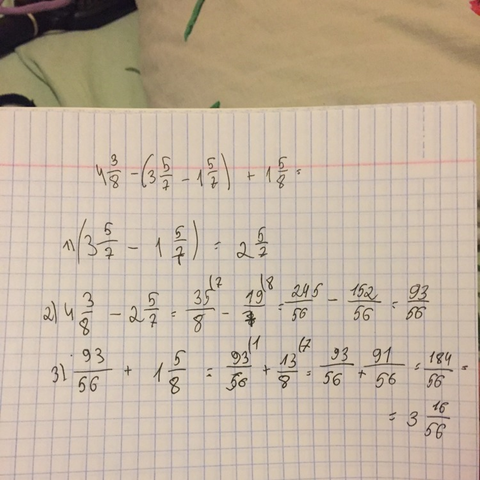 4 3/8 - (3 5/7 - 1 5/7) + 1 5/8 =
1) (3 5/7 - 1 5/7) = 2 5/7
2) 4 3/8 - 2 5/7 = 35/8 (7 - 19/7 (8 = 245/56 - 152/56 = 93/56
3) 93/56 + 1 5/8 = 93/56 (1 + 13/8 (7 = 93/56 + 91/56 = 184/56 =
= 3 16/56